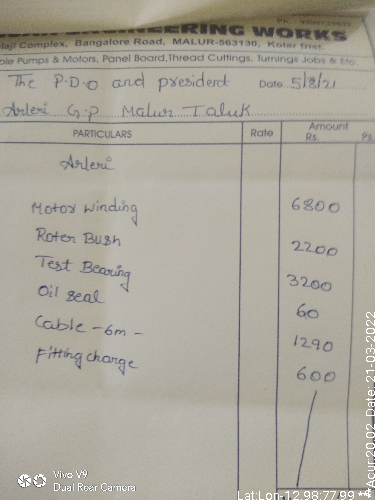 ENGINEERING WORKS
Complex, Bangalore Road, MALUR-563130, Kolar Dist.
Pumps & Motors, Panel Board, Thread Cuttings, Turnings Jobs & Etc.
The P.D.O and president Date 5/8/21
Arleri G.P Malur Taluk
PARTICULARS Rate Amount
Rs. Ps.
Arleri
Motor winding 6800
Roter Bush 2200
Test Bearing 3200
Oil seal 60
Cable - 6m - 1290
Fitting charge 600
Vivo V9
Dual Rear Camera
Lat:Lon-12.98:77.99
Acur:20.02 Date: 21-03-2022